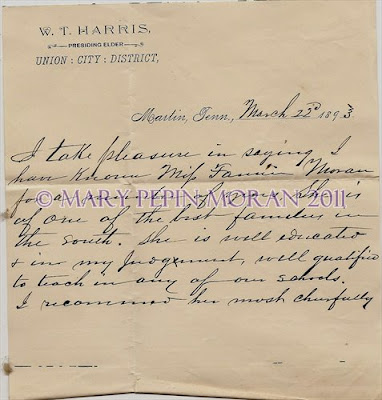 W. T. HARRIS,
PRESIDING ELDER
UNION : CITY : DISTRICT,
Martin, Tenn., March 22d 1893
I take pleasure in saying I
have known Miss Fannie Moran
for a number of years. She is
© MARY PEPIN MORAN 2011
of one of the best families in
the South. She is well educated
& in my Judgement, well qualified
to teach in any of our schools.
I recommend her most cheerfully